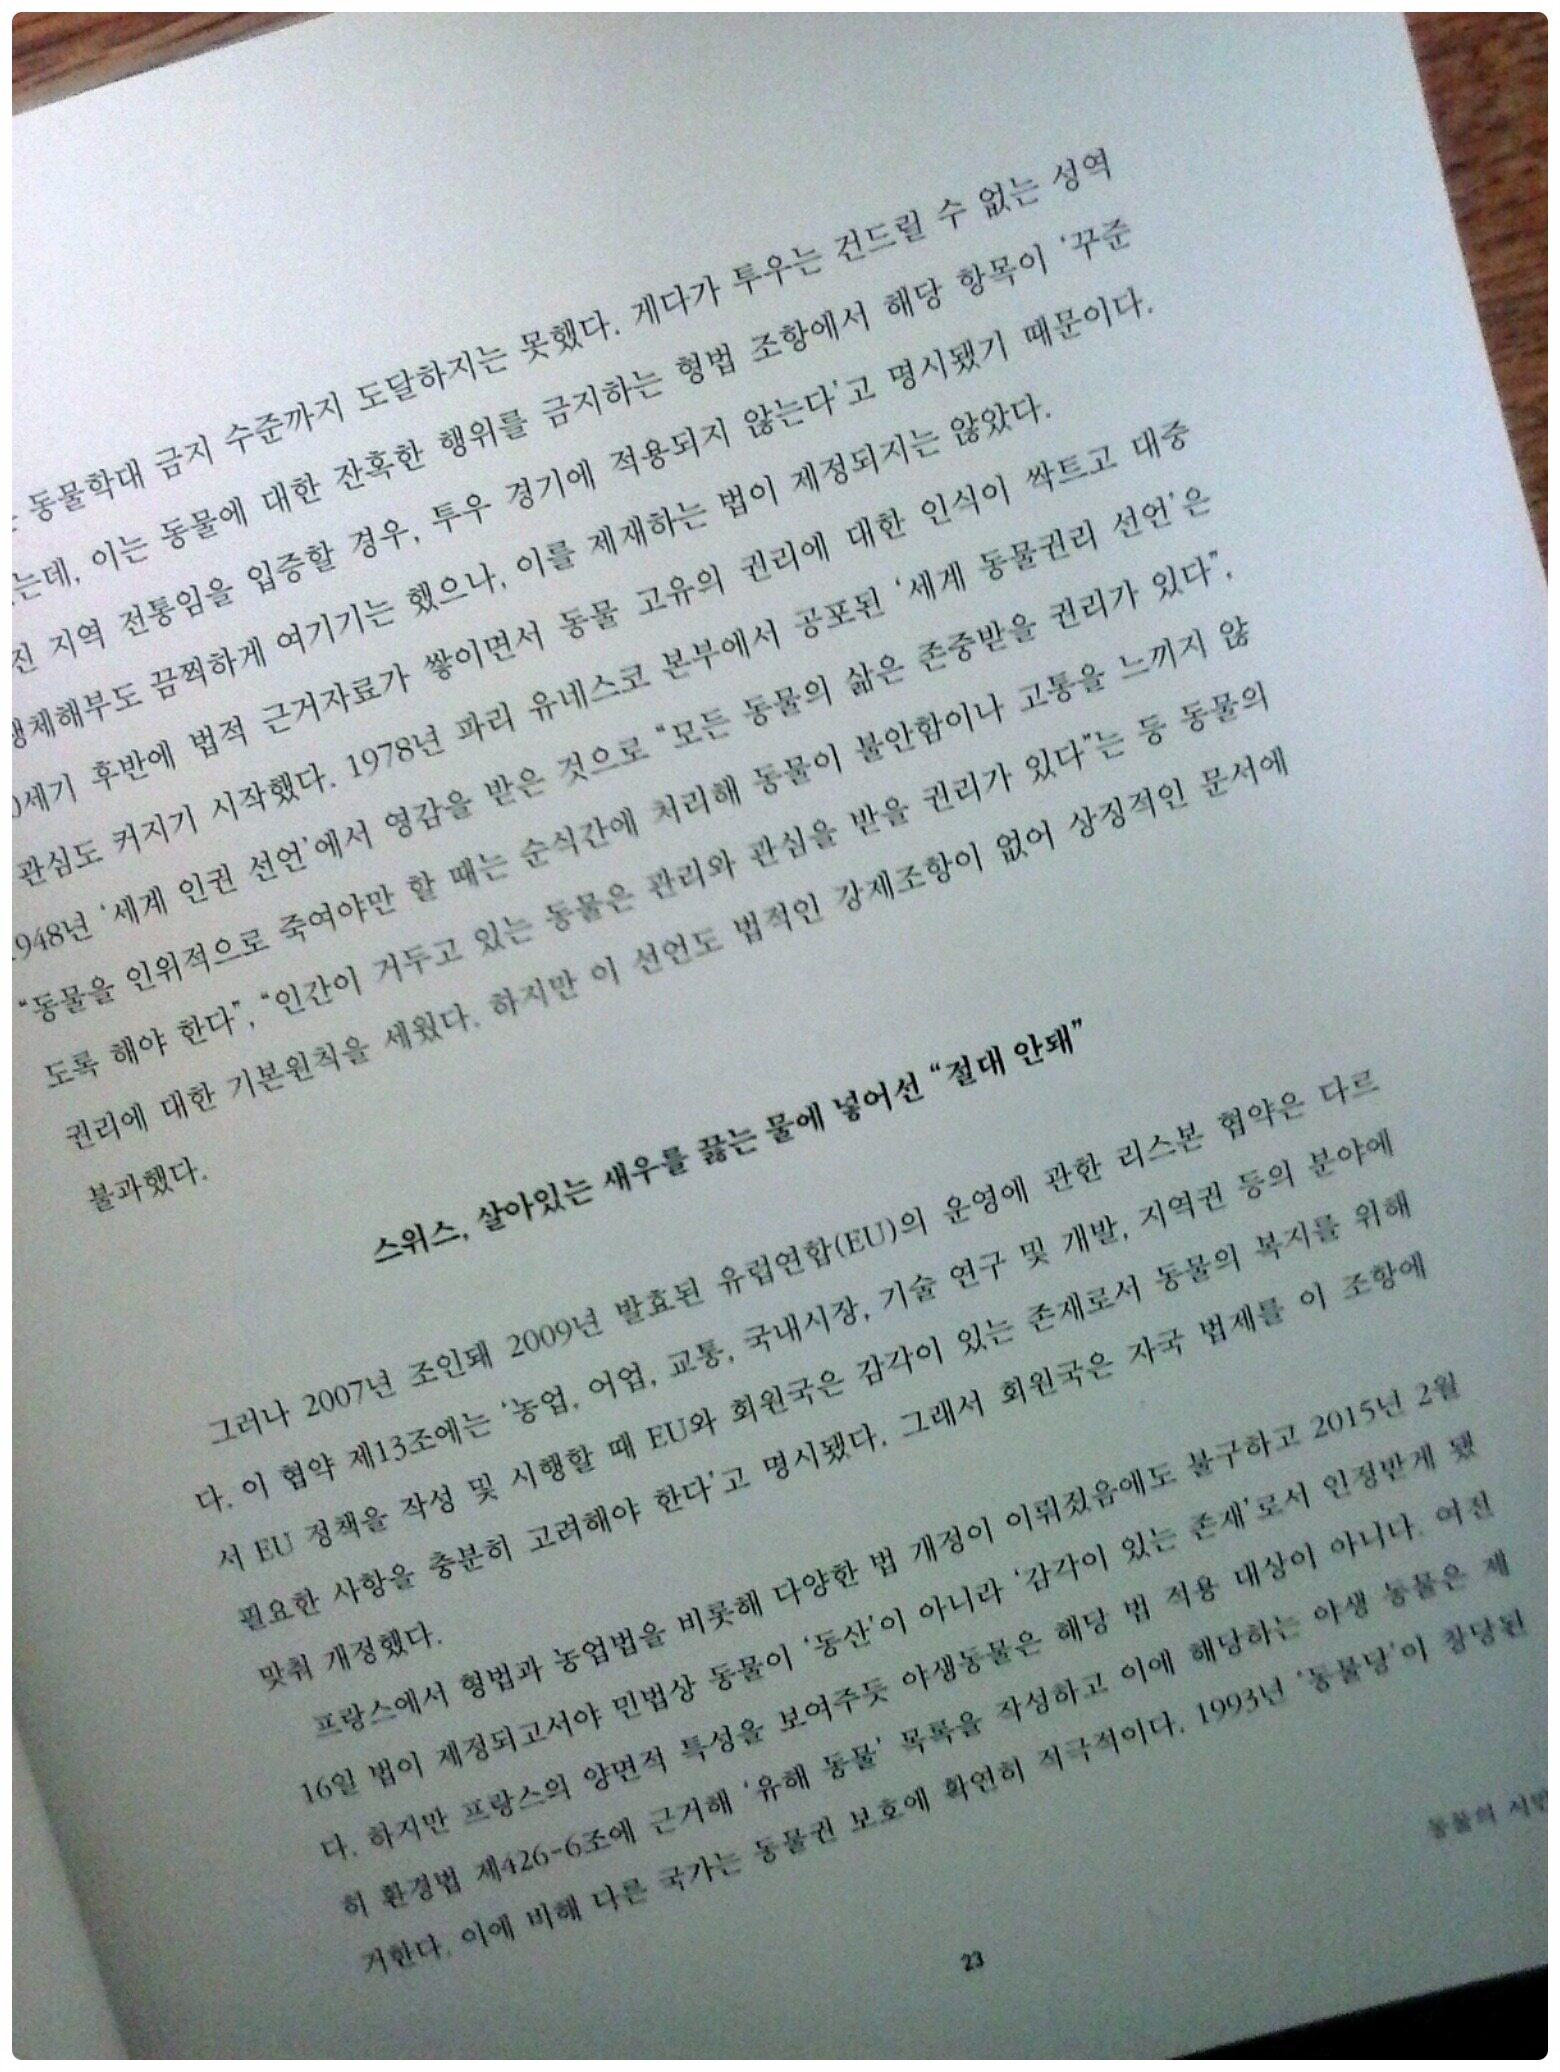 동물학대 금지 수준까지 도달하지는 못했다. 게다가 투우는 건드릴 수 없는 성역
는데, 이는 동물에 대한 잔혹한 행위를 금지하는 형법 조항에서 해당 항목이 ‘꾸준
진 지역 전통임을 입증할 경우, 투우 경기에 적용되지 않는다’고 명시됐기 때문이다.
생체해부도 끔찍하게 여기기는 했으나, 이를 제재하는 법이 제정되지는 않았다.
0세기 후반에 법적 근거자료가 쌓이면서 동물 고유의 권리에 대한 인식이 싹트고 대중
관심도 커지기 시작했다. 1978년 파리 유네스코 본부에서 공포된 ‘세계 동물권리 선언’은
1948년 ‘세계 인권 선언’에서 영감을 받은 것으로 “모든 동물의 삶은 존중받을 권리가 있다”,
“동물을 인위적으로 죽여야만 할 때는 순식간에 처리해 동물이 불안함이나 고통을 느끼지 않
도록 해야 한다”, “인간이 거두고 있는 동물은 관리와 관심을 받을 권리가 있다”는 등 동물의
권리에 대한 기본원칙을 세웠다. 하지만 이 선언도 법적인 강제조항이 없어 상징적인 문서에
불과했다.
스위스, 살아있는 새우를 끓는 물에 넣어선 “절대 안돼”
그러나 2007년 조인돼 2009년 발효된 유럽연합(EU)의 운영에 관한 리스본 협약은 다르
다. 이 협약 제13조에는 ‘농업, 어업, 교통, 국내시장, 기술 연구 및 개발, 지역권 등의 분야에
서 EU 정책을 작성 및 시행할 때 EU와 회원국은 감각이 있는 존재로서 동물의 복지를 위해
필요한 사항을 충분히 고려해야 한다’고 명시됐다. 그래서 회원국은 자국 법제를 이 조항에
맞춰 개정했다.
프랑스에서 형법과 농업법을 비롯해 다양한 법 개정이 이뤄졌음에도 불구하고 2015년 2월
16일 법이 제정되고서야 민법상 동물이 ‘동산’이 아니라 ‘감각이 있는 존재’로서 인정받게 됐
다. 하지만 프랑스의 양면적 특성을 보여주듯 야생동물은 해당 법 적용 대상이 아니다. 여전
히 환경법 제426-6조에 근거해 ‘유해 동물’ 목록을 작성하고 이에 해당하는 야생 동물은 제
거한다. 이에 비해 다른 국가는 동물권 보호에 확연히 적극적이다. 1993년 ‘동물당’이 창당된
동물의 시민
23